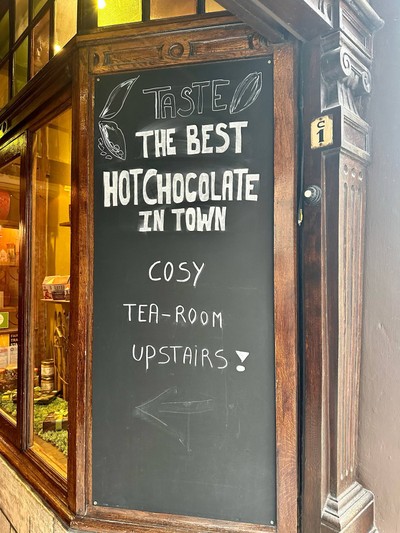 TASTE
THE BEST
HOT CHOCOLATE
IN TOWN
COSY
TEA-ROOM
UPSTAIRS!